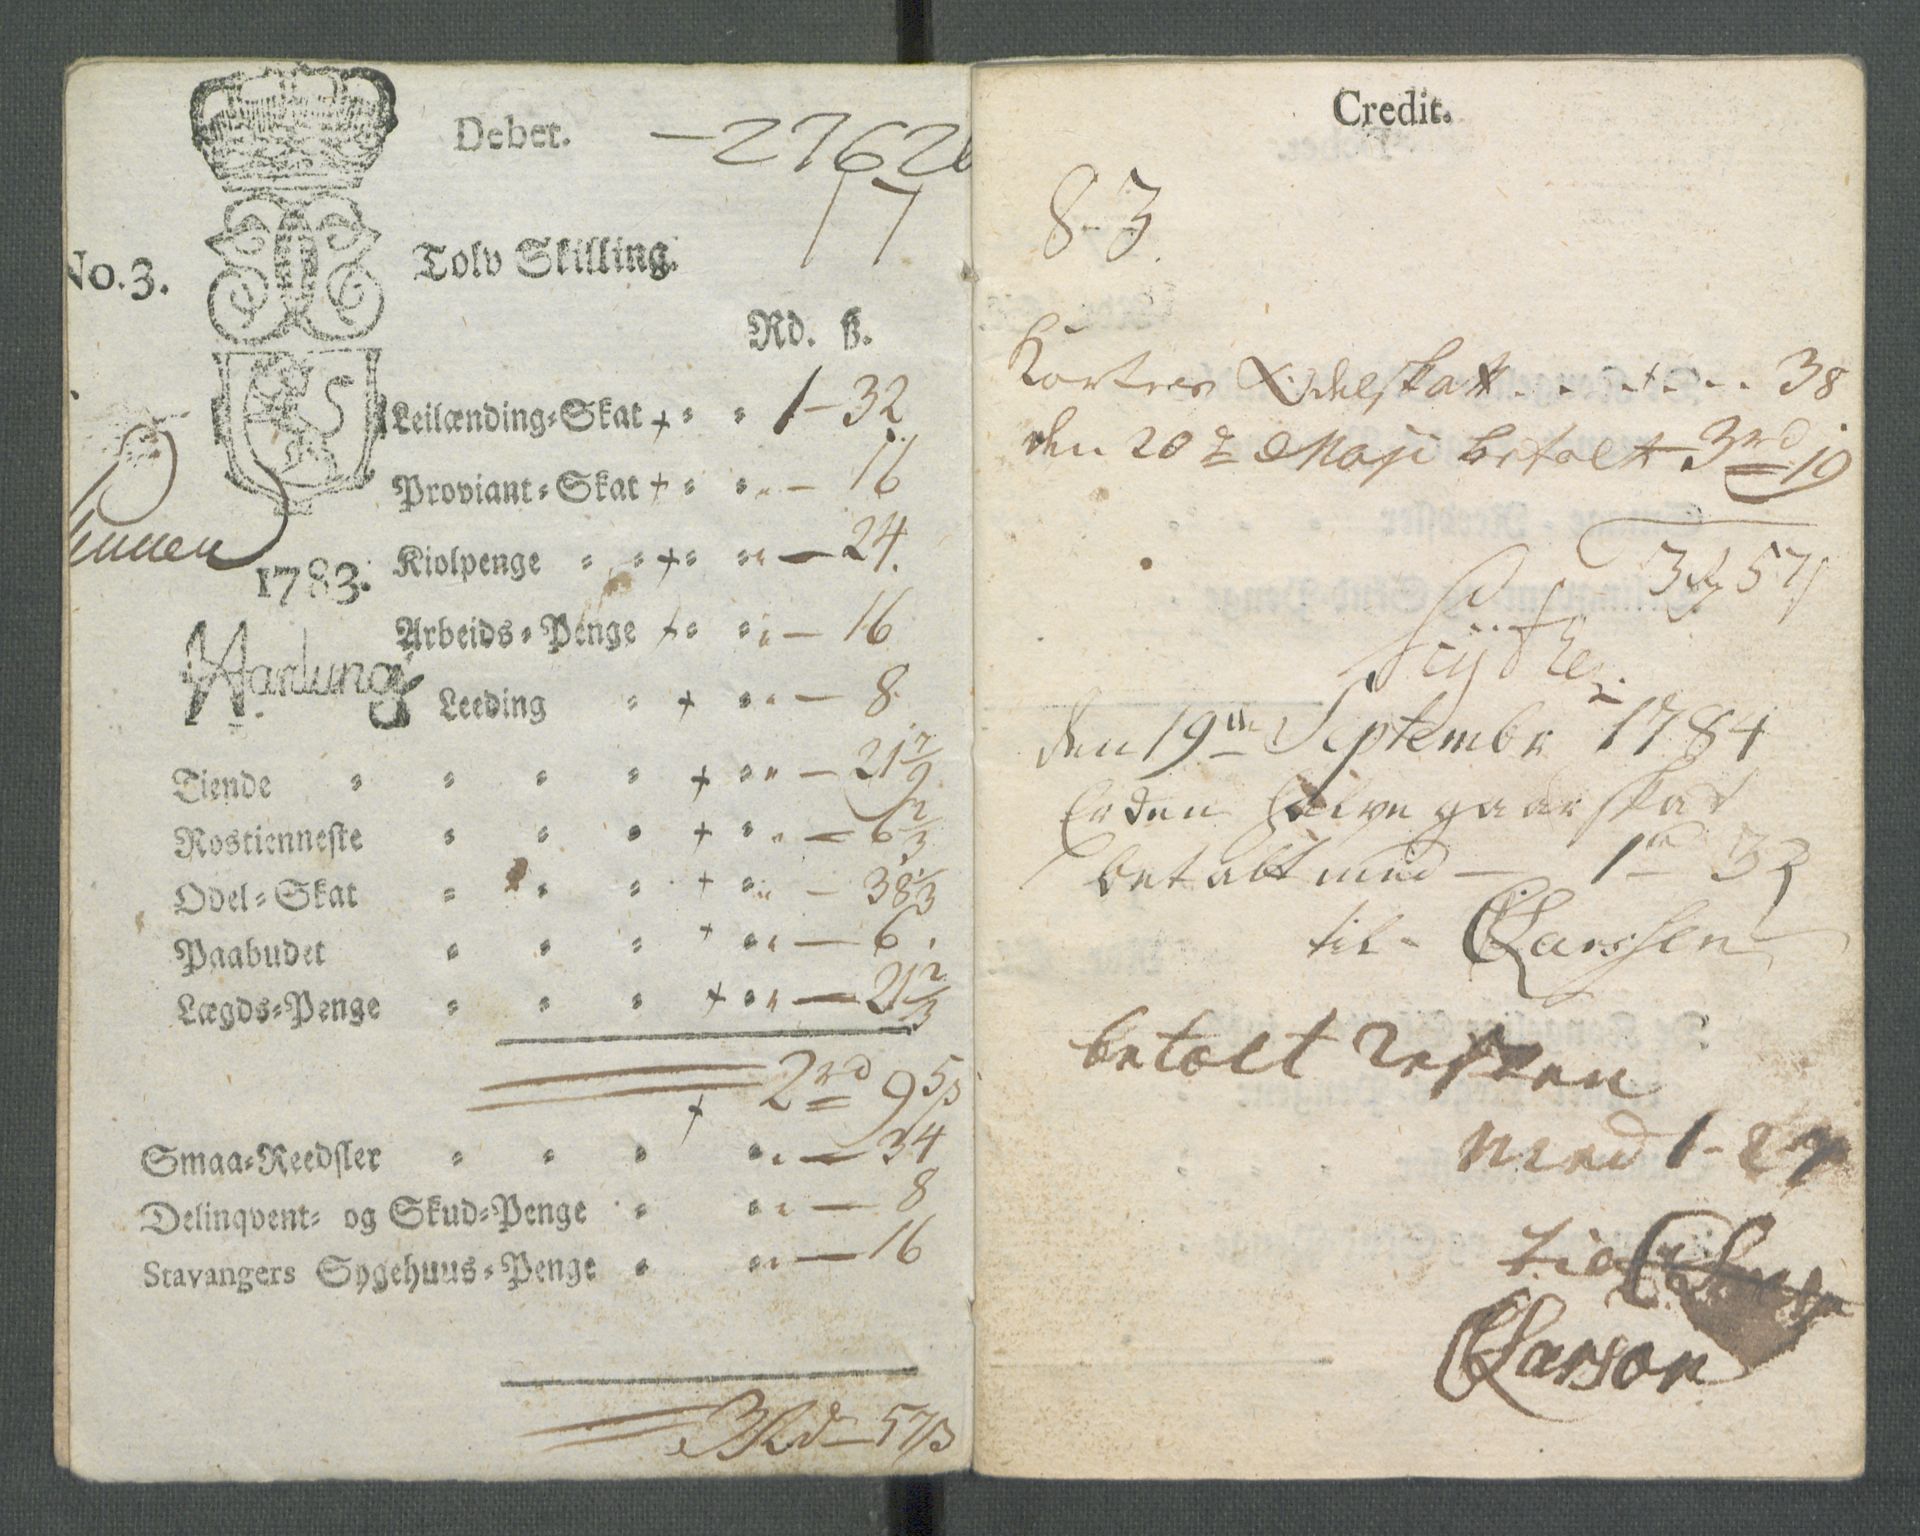 Debet. — 2762
17
No. 3.
Tolv Skilling.
Rd. ß.
Leilænding-Skat + 1 — 32
Proviant-Skat + — 16
Kiolpenge + — 24.
1783.
Arbeids-Penge + — 16
Leeding + — 8.
Tiende + — 21
Rostienneste + — 6 2/3
Odel-Skat + — 38 1/3
Paabudet + — 6.
Lægds-Penge + — 21 2/3
2 rd 95 ß
+
Smaa-Reedsler — 34
Delinqvent- og Skud-Penge — 8
Stavangers Sygehuus-Penge — 16
3 Rd — 57 ß
Credit.
8-3.
Odelskatt . . . . . . 38
den 20 Maji betalt 3 rd 19
3 57
den 19 Septembr 1784
Er den halve gaar skat
betalt med — 1 — 33
til - CLarssen
betalt Resten
med 1 - 2
CLarson